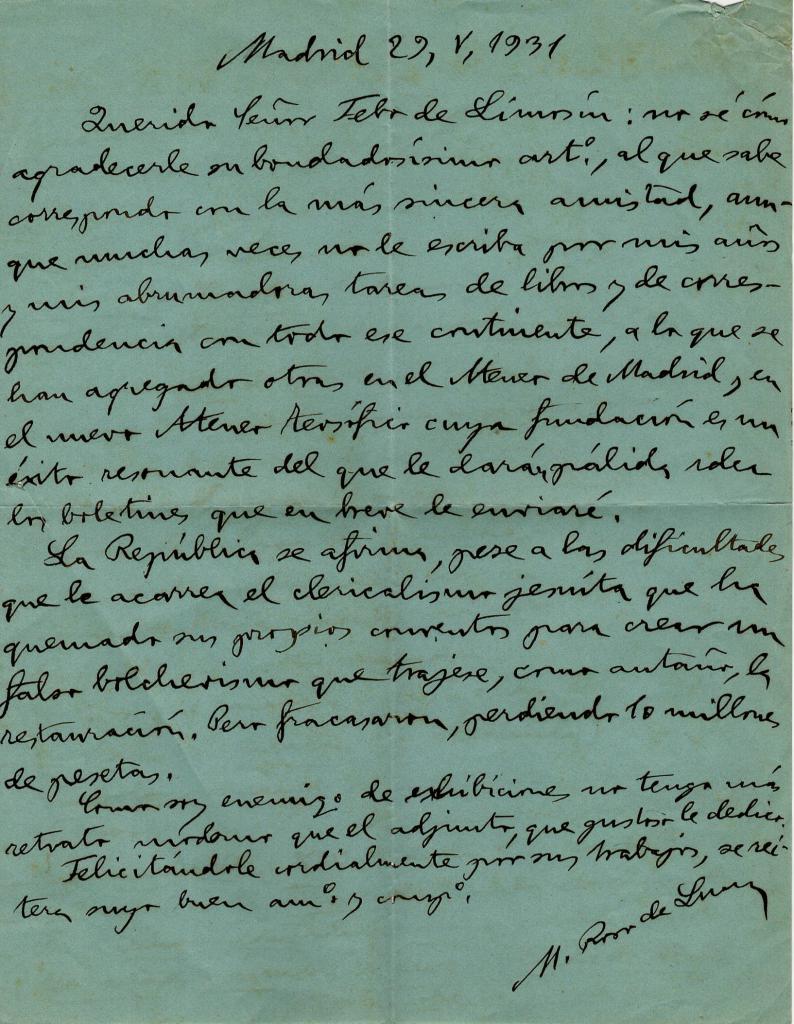 Madrid 29, V, 1931
Querido Señor Febo de Limosín: no sé cómo
agradecerle su bondadosísimo artº., al que sabe
correspondo con la más sincera amistad, aun-
que muchas veces no le escriba por mis años
y mis abrumadoras tareas de libros y de corres-
pondencia con todo ese continente, a la que se
han agregado otras en el Ateneo de Madrid y en
el nuevo Ateneo teosófico cuya fundación es un
éxito resonante del que le darán pálida idea
los boletines que en breve le enviaré.
La República se afirma, pese a las dificultades
que le acarrea el clericalismo jesuíta que ha
quemado sus propios conventos para crear un
falso bolchevismo que trajese, como antaño, la
restauración. Pero fracasaron, perdiendo 10 millones
de pesetas.
Como soy enemigo de exhibiciones no tengo más
retrato moderno que el adjunto, que gustoso le dedico.
Felicitándole cordialmente por sus trabajos, se rei-
tera suyo buen amº. y compº.
M. Roso de Luna